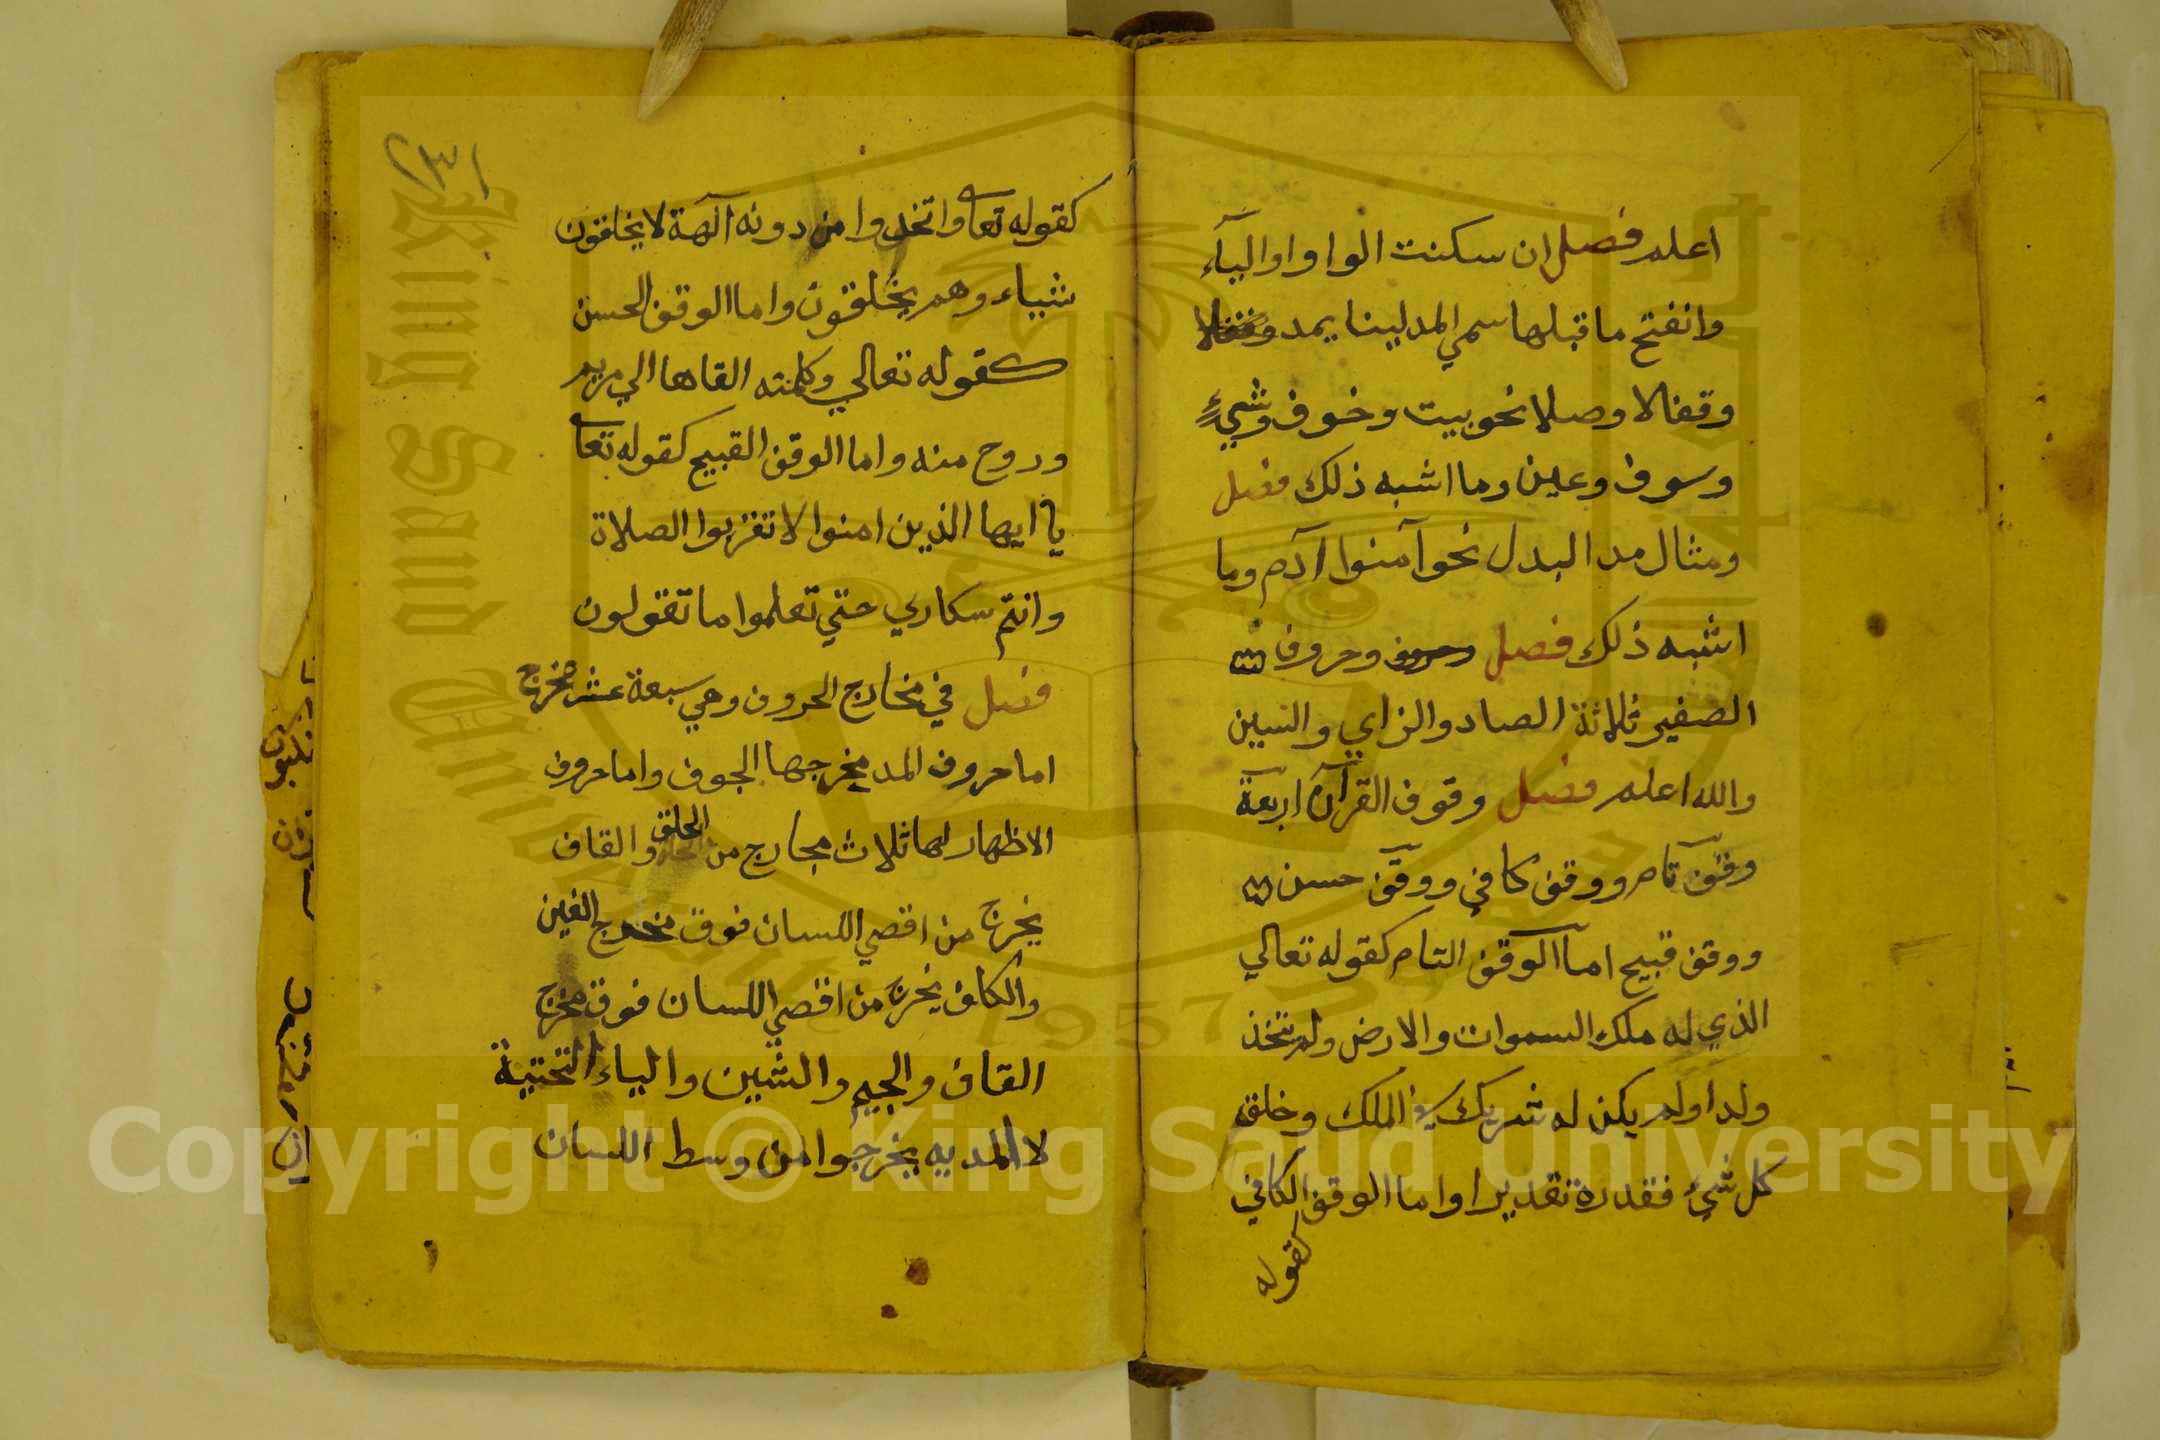 اعلم فصل ان سكنت الواو اوالياء
وانفتح ما قبلها سمي المد لينا يمد
وقفا لا وصلا نحو بيت وخوف وشيء
وسوف وعين وما اشبه ذلك فصل
ومثال مد البدل نحو آمنوا آدم وما
اشبه ذلك فصل وحروف
الصفير ثلاثة الصاد والزاي والسين
والله اعلم فصل وقوف القرآن اربعة
وقف تام ووقف كافي ووقف حسن
ووقف قبيح اما الوقف التام كقوله تعالي
الذي له ملك السموات والارض ولم يتخذ
ولدا ولم يكن له شريك في الملك وخلق
كل شيء فقدره تقديرا واما الوقف الكافي
كقوله
٢٣١
كقوله تعا واتخدوا من دونه آلهة لا يخلقون
شياء وهم يخلقون واما الوقف الحسن
كقوله تعالي وكلمته القاها الي مريم
وروح منه واما الوقف القبيح كقوله تعا
يا ايها الذين امنوا لا تقربوا الصلاة
وانتم سكاري حتي تعلموا ما تقولون
فصل في مخارج الحروف وهي سبعة عشر مخرج
اما حروف المد مخرجها الجوف واما حروف
الاظهار لها ثلاث مجارج من الحلق والقاف
يخرج من اقصي اللسان فوق مخرج الغين
والكاف يخرج من اقصي اللسان فوق مخرج
القاف والجيم والشين والياء التحتية
لا المديه يخرجوا من وسط اللسان
Copyright © King Saud University
King Saud University
1957